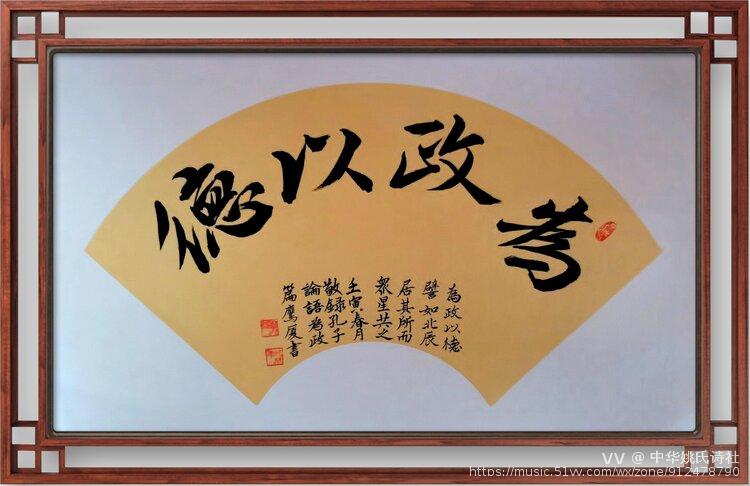 為政以德
為政以德
譬如北辰
居其所而
眾星共之
壬寅春月
敬録孔子
論語為政
篇鷹厦書
VV @ 中华姚氏诗社
https://music.51vv.com/wx/zone/912478790